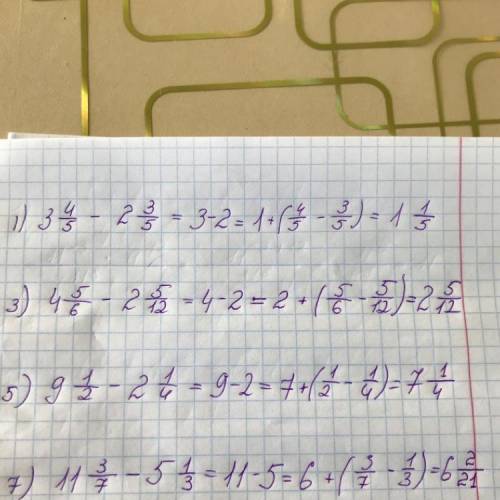 1) 3 4/5 - 2 3/5 = 3-2 = 1+(4/5 - 3/5) = 1 1/5
3) 4 5/6 - 2 5/12 = 4-2 = 2 + (5/6 - 5/12) = 2 5/12
5) 9 1/2 - 2 1/4 = 9-2 = 7+(1/2 - 1/4) = 7 1/4
7) 11 3/7 - 5 1/3 = 11-5 = 6 + (3/7 - 1/3) = 6 2/21